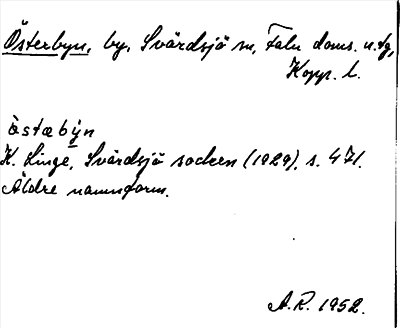 Österbyn, by, Svärdsjö sn, Falu doms. n. tg,
Kopp. l.
östäbyn
K. Linge, Svärdsjö socken (1929), s. 471.
Äldre namnform.
A.R. 1952.